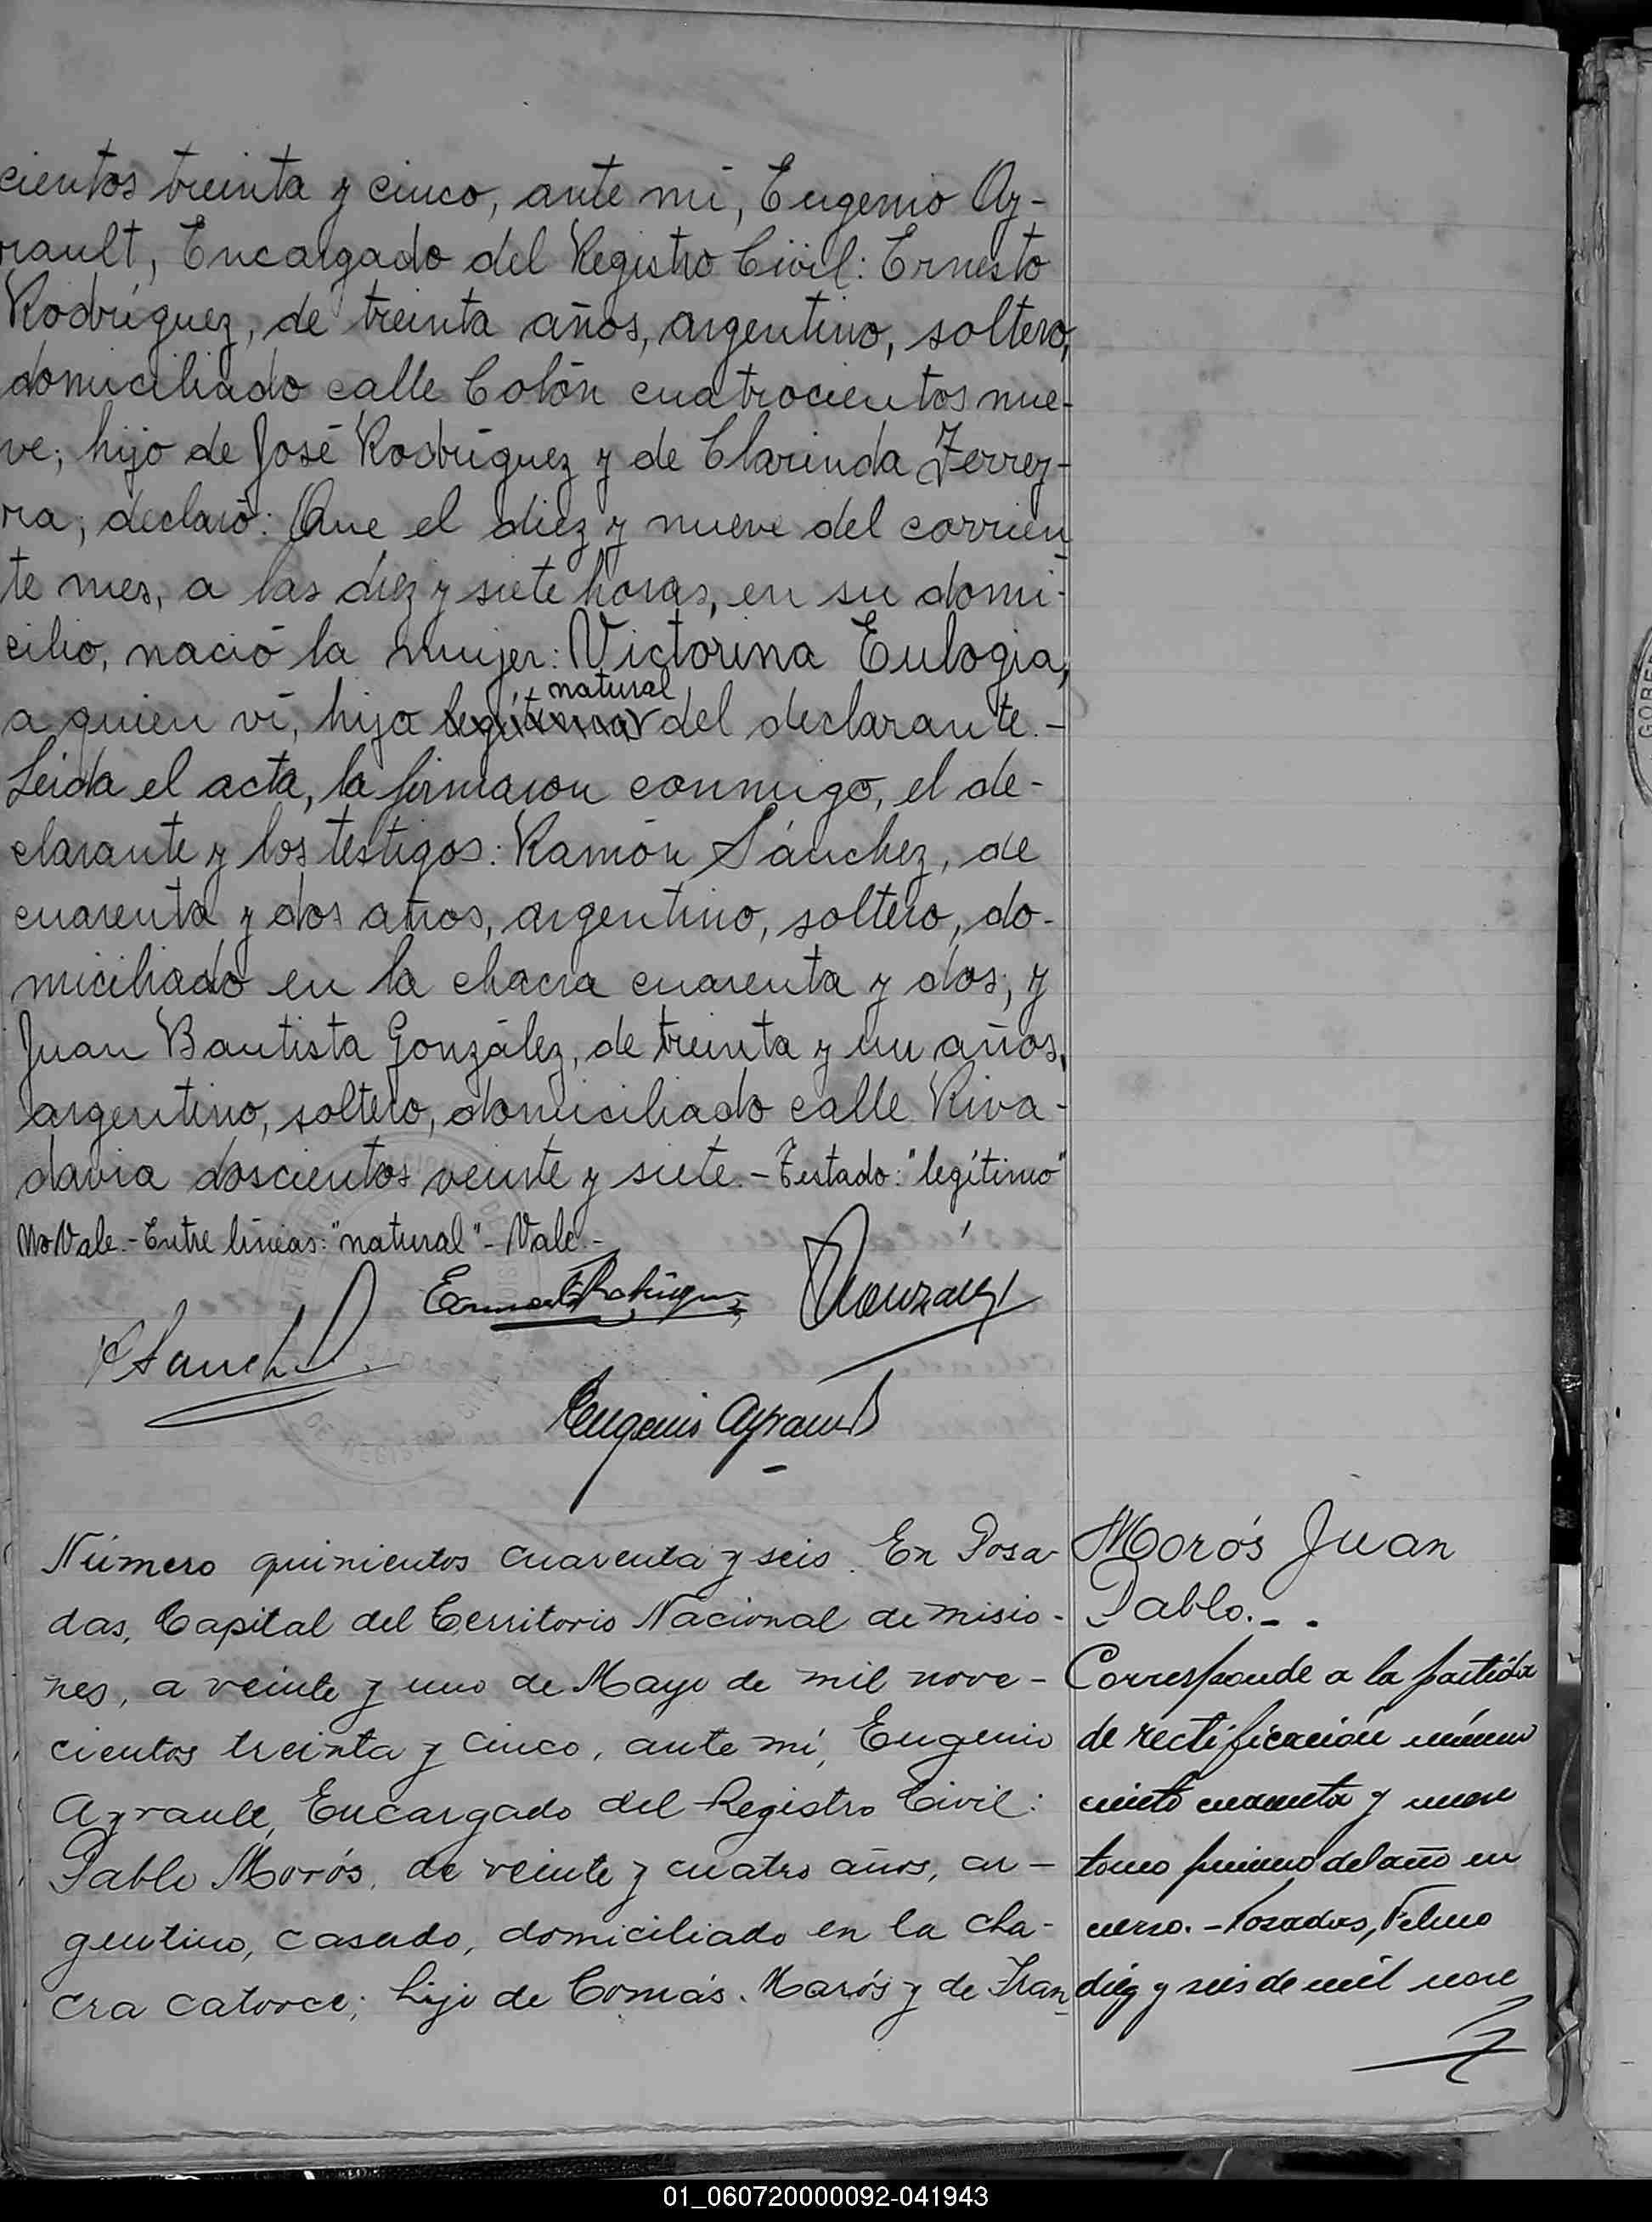 cientos treinta y cinco, ante mí, Eugenio Ay-
rault, Encargado del Registro Civil: Ernesto
Rodríguez, de treinta años, argentino, soltero,
domiciliado calle Colón cuatrocientos nue-
ve; hijo de José Rodríguez y de Clarinda Ferrey-
ra; declaró: Que el diez y nueve del corrien
te mes, a las diez y siete horas, en su domi-
cilio, nació la mujer: Victorina Eulogia,
natural
a quien ví, hija legítima del declarante.-
Leida el acta, la firmaron conmigo, el de-
clarante y los testigos: Ramón Sánchez, de
cuarenta y dos años, argentino, soltero, do-
miciliado en la chacra cuarenta y dos; y
Juan Bautista González, de treinta y un años,
argentino, soltero, domiciliado calle Riva-
davia doscientos veinte y siete.- Testado: "legítimo"
No Vale.- Entre líneas: "natural"- Vale.-
Ernesto Rodríguez
González
R Sanchez
Eugenio Ayrault
Número quinientos cuarenta y seis. En Posa-
das, Capital del Territorio Nacional de Misio-
nes, a veinte y uno de Mayo de mil nove-
cientos treinta y cinco, ante mí, Eugenio
Ayrault, Encargado del Registro Civil:
Pablo Morós, de veinte y cuatro años, ar-
gentino, casado, domiciliado en la cha-
cra catorce; hijo de Tomás Marós y de Fran
Morós Juan
Pablo.- -
Corresponde a la partida
de rectificación número
ciento cuarenta y nueve
tomo primero del año en
curso.- Posadas, Febrero
diez y seis de mil nove
GOBE
01_060720000092-041943